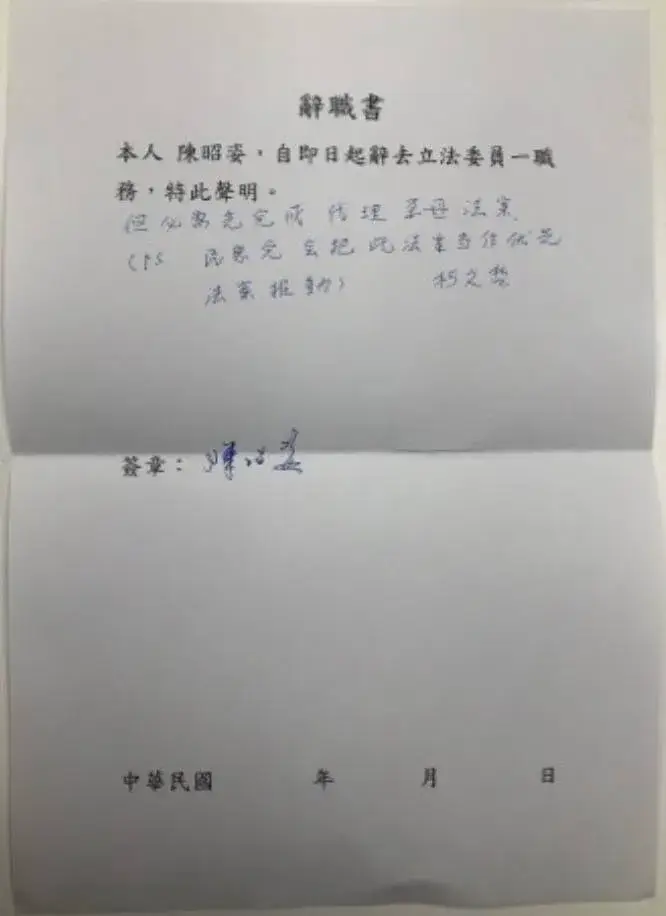 辭職書
本人 陳昭姿，自即日起辭去立法委員一職
務，特此聲明。
但必需先完成 代理孕母法案
(PS 民眾党会把此法案当作优先
法案推動) 柯文哲
簽章：陳昭姿
中華民國 年 月 日